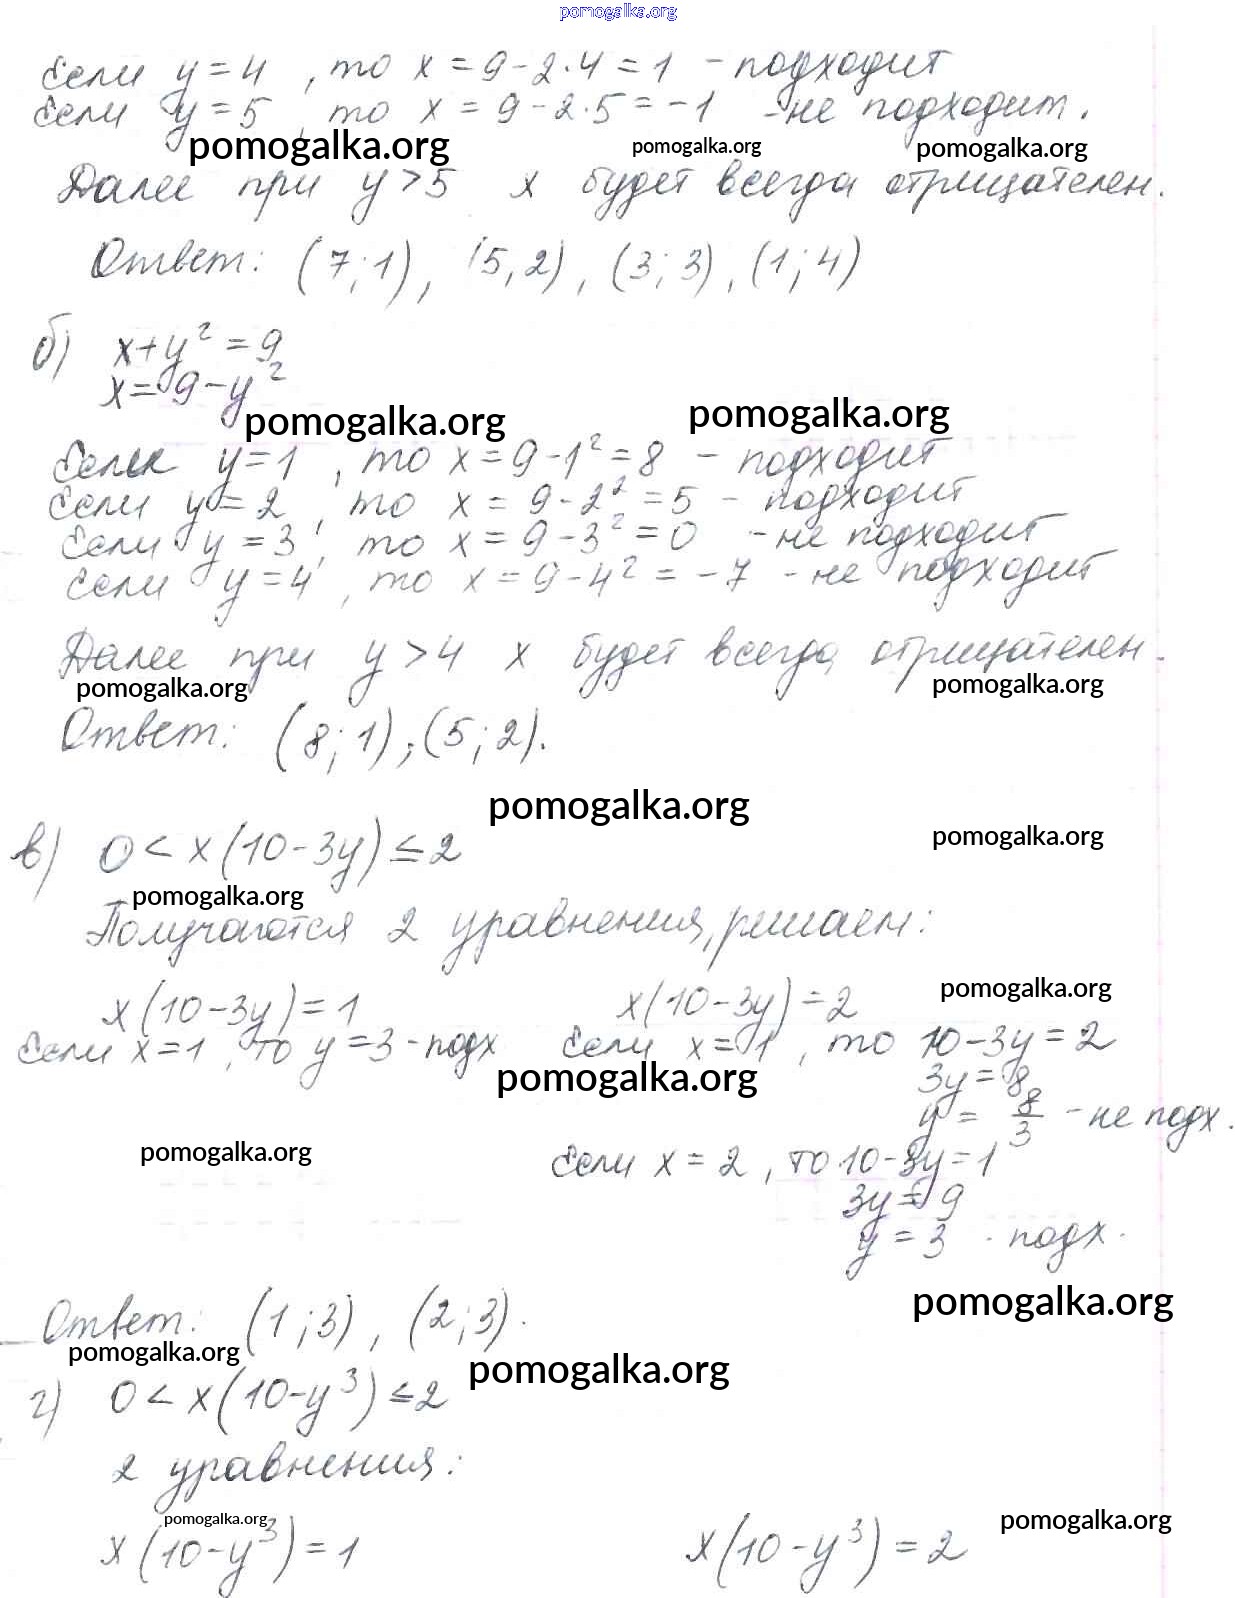 pomogalka.org
Если y = 4, то x = 9 - 2·4 = 1 - подходит
Если y = 5, то x = 9 - 2·5 = -1 - не подходит.
pomogalka.org pomogalka.org pomogalka.org
Далее при y > 5 x будет всегда отрицателен.
Ответ: (7;1), (5,2), (3;3), (1;4)
б) x + y² = 9
x = 9 - y²
pomogalka.org pomogalka.org
Если y = 1, то x = 9 - 1² = 8 - подходит
Если y = 2, то x = 9 - 2² = 5 - подходит
Если y = 3, то x = 9 - 3² = 0 - не подходит
Если y = 4, то x = 9 - 4² = -7 - не подходит
Далее при y > 4 x будет всегда отрицателен.
pomogalka.org pomogalka.org
Ответ: (8;1), (5;2).
pomogalka.org
pomogalka.org
в) 0 < x(10 - 3y) ≤ 2
pomogalka.org
Получаются 2 уравнения, решаем:
pomogalka.org
x(10 - 3y) = 1 x(10 - 3y) = 2
Если x = 1, то y = 3 - подх Если x = 1, то 10 - 3y = 2
pomogalka.org
3y = 8
y = 8/3 - не подх.
pomogalka.org
Если x = 2, то 10 - 3y = 1
3y = 9
y = 3 - подх.
pomogalka.org
Ответ: (1;3), (2;3).
pomogalka.org pomogalka.org
г) 0 < x(10 - y³) ≤ 2
2 уравнения:
pomogalka.org pomogalka.org
x(10 - y³) = 1 x(10 - y³) = 2